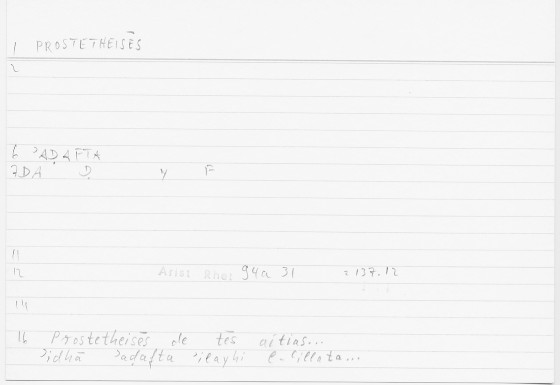 1 PROSTETHEISĒS
2
6 ʾAḌAFTA
7 DA Ḍ Y F
11
12 Aris: Rhe: 94a 31 = 137.12
14
16 Prostetheisēs de tēs aitias...
ʾidhā ʾaḍafta ʾilayhi l-ʿillata...